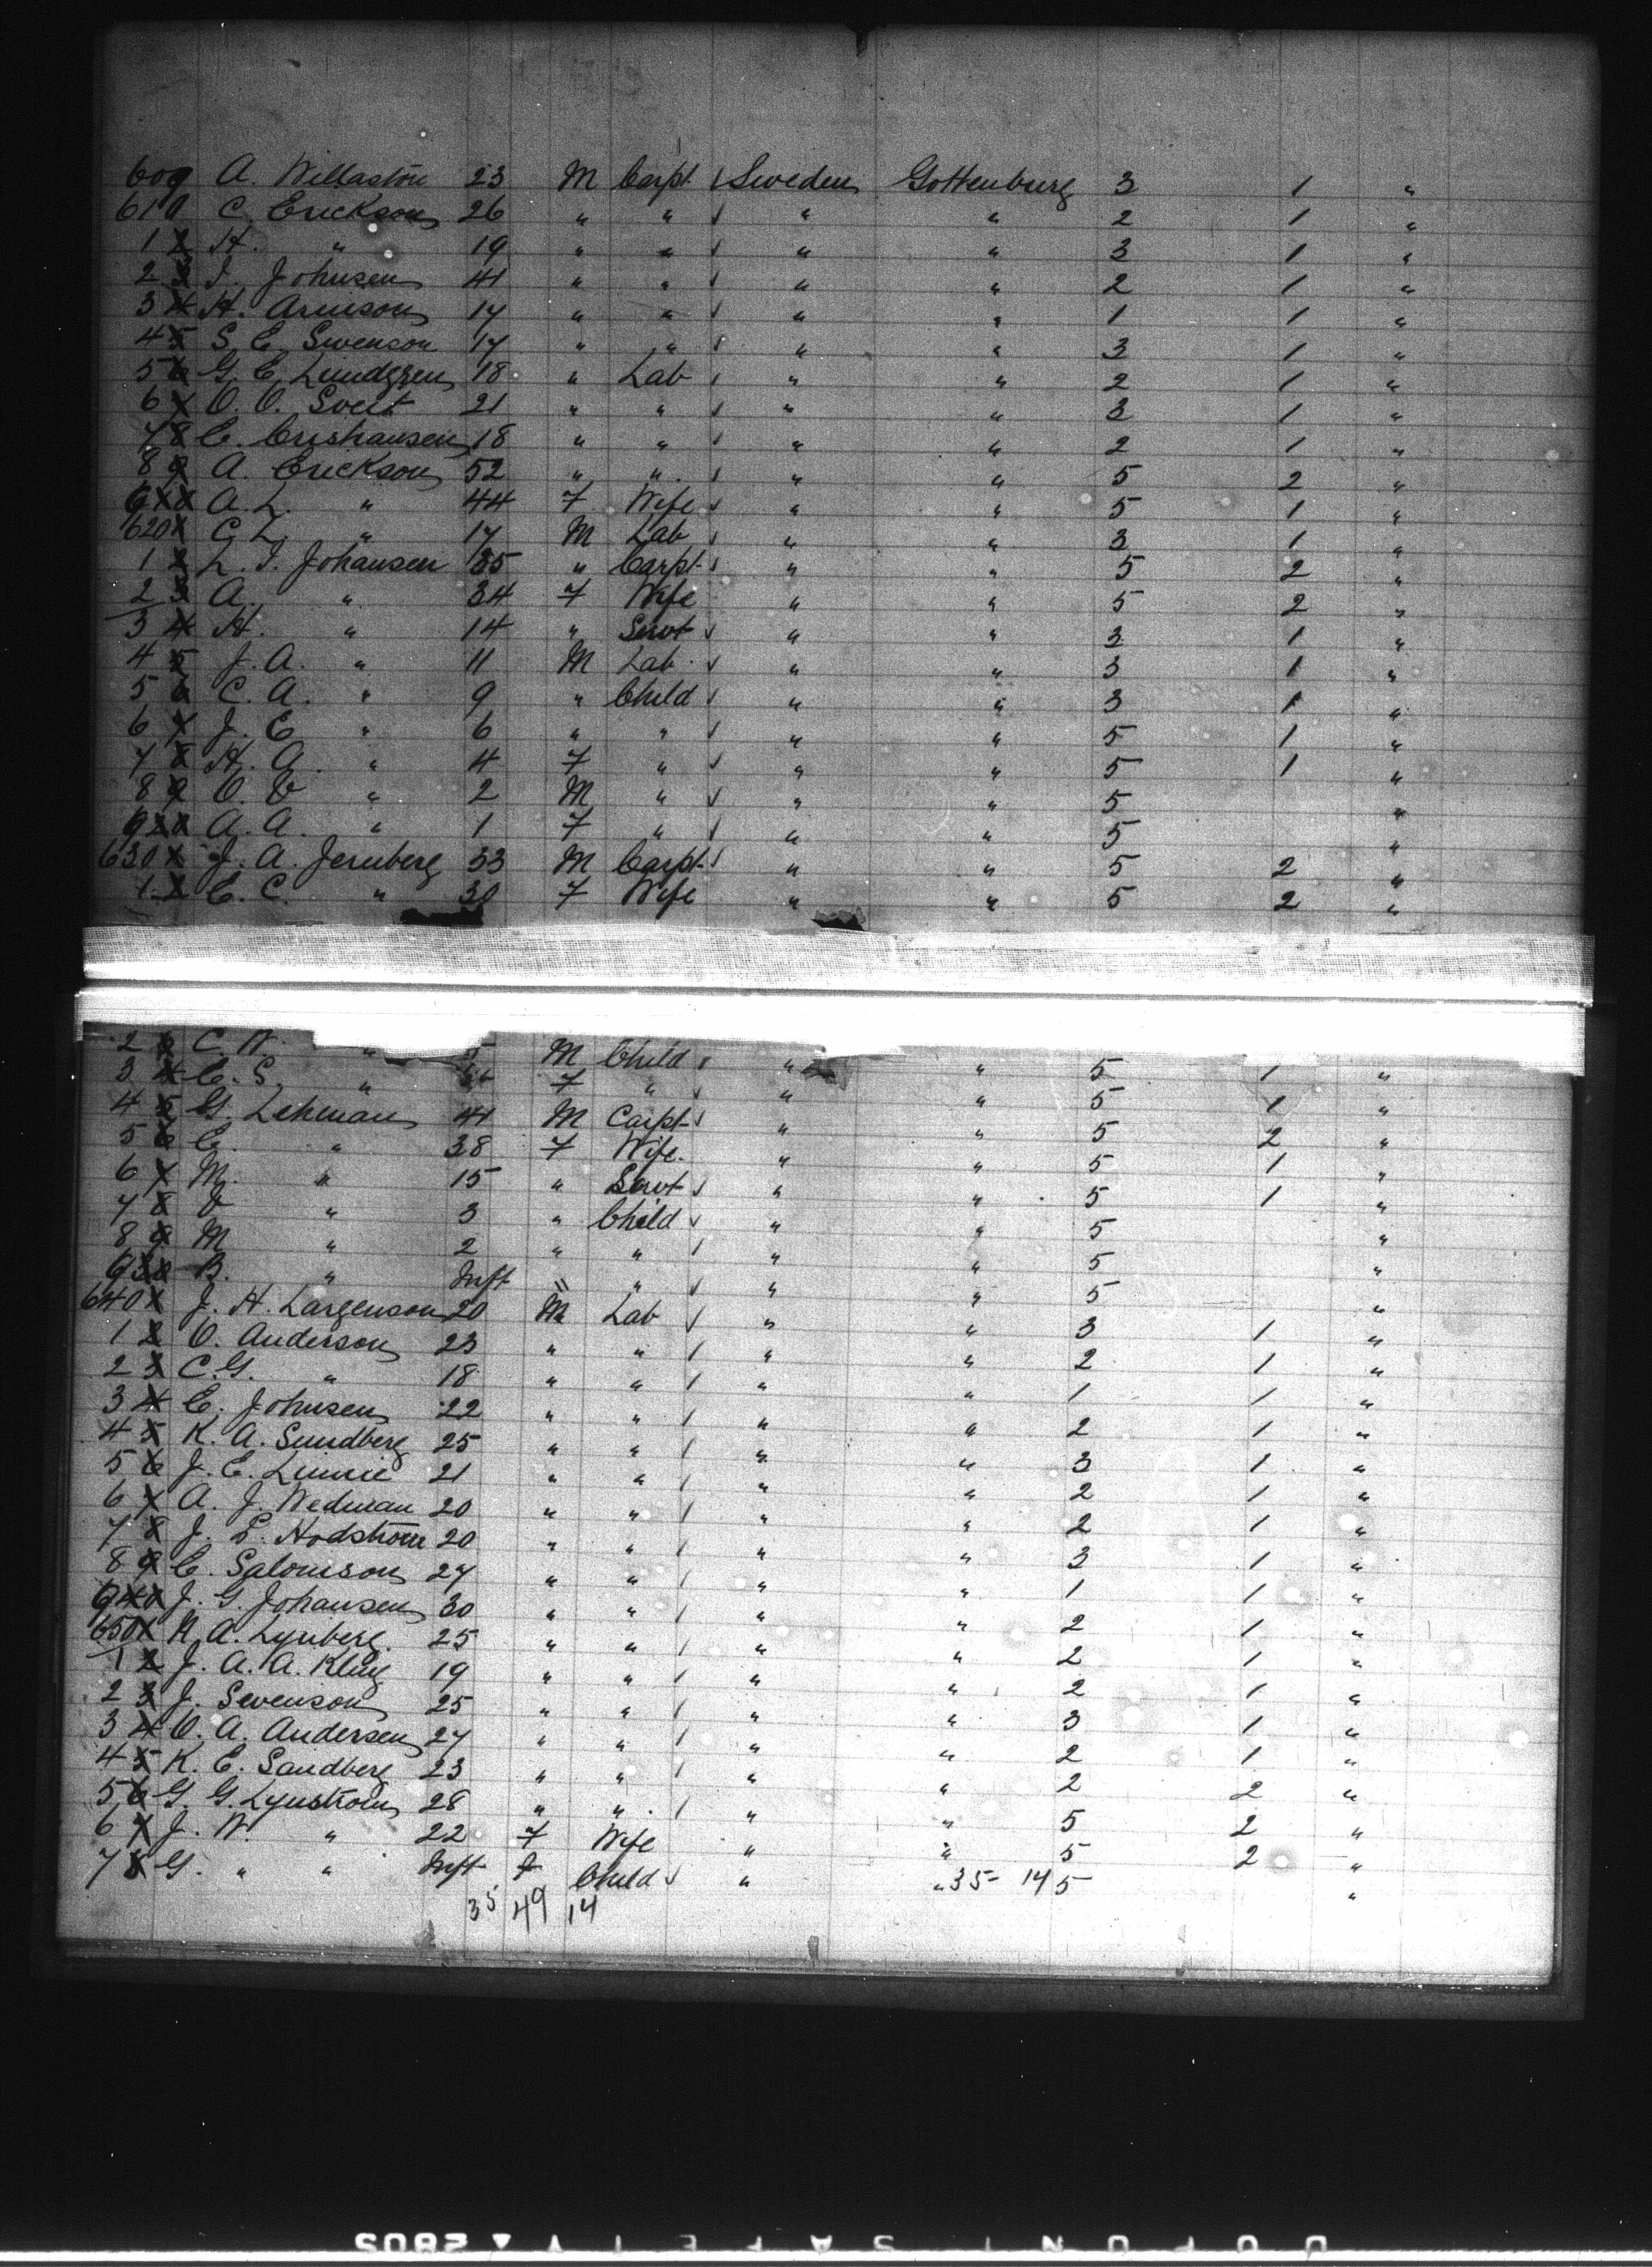 609 A. Willaston 23 M Carpt. √ Sweden Gottenburg 3 1 "
610 C. Erickson 26 " " √ " " 2 1 "
1 2 H. " 19 " " √ " " 3 1 "
2 3 J. Johnsen 41 " " √ " " 2 1 "
3 4 H. Arnuson 17 " " √ " " 1 1 "
4 5 S. E. Swenson 17 " " √ " " 3 1 "
5 6 G. E. Lundgren 18 " Lab √ " " 2 1 "
6 7 O. O. Sveit 21 " " √ " " 3 1 "
7 8 C. Crishansen 18 " " √ " " 2 1 "
8 9 A. Erickson 52 " " √ " " 5 2 "
9 A. L. " 44 F Wife √ " " 5 1 "
620 1 C. L. " 17 M Lab √ " " 3 1 "
1 2 L. J. Johansen 35 " Carpt. √ " " 5 2 "
2 3 A. " 34 F Wife " " 5 2 "
3 4 H. " 14 " Servt √ " " 3 1 "
4 5 J. A. " 11 M Lab √ " " 3 1 "
5 6 C. A. " 9 " Child √ " " 3 1 "
6 7 J. E. " 6 " " √ " " 5 1 "
7 8 H. A. " 4 F " √ " " 5 1 "
8 9 O. V. " 2 M " √ " " 5 "
9 A. A. " 1 F " √ " " 5 "
630 1 J. A. Jernberg 33 M Carpt √ " " 5 2 "
1 2 E. C. " 30 F Wife " " 5 2 "
2 3 C. W. " M Child √ " " 5 1 "
3 4 E. S. " F " " " 5 1 "
4 5 G. Lehman 41 M Carpt √ " " 5 2 "
5 6 E. " 38 F Wife " " 5 1 "
6 7 M. " 15 " Servt √ " " 5 1 "
7 8 V " 3 " Child √ " " 5 "
8 9 M " 2 " " √ " " 5 "
9 B. " Inft " " √ " " 5 "
640 1 J. H. Largenson 20 M Lab √ " " 3 1 "
1 2 O. Anderson 23 " " √ " " 2 1 "
2 3 C. G. " 18 " " √ " " 1 1 "
3 4 E. Johnsen 22 " " √ " " 2 1 "
4 5 K. A. Sundberg 25 " " √ " " 3 1 "
5 6 J. E. Linnie 21 " " √ " " 2 1 "
6 7 A. J. Wedman 20 " " √ " " 2 1 "
7 8 J. L. Hodstrom 20 " " √ " " 3 1 "
8 9 E. Salomson 27 " " √ " " 1 1 "
9 J. G. Johansen 30 " " √ " " 2 1 "
650 1 N. A. Lynberg. 25 " " √ " " 2 1 "
1 2 J. A. A. Kling 19 " " √ " " 2 1 "
2 3 J. Swenson 25 " " √ " " 3 1 "
3 4 O. A. Andersen 27 " " √ " " 2 1 "
4 5 K. E. Sandberg 23 " " √ " " 2 2 "
5 6 G. G. Lynstrom 28 " " √ " " 5 2 "
6 7 J. W. " 22 F Wife " " 5 2 "
7 8 G. " " Inft F Child √ " " 35 14 5 "
35 49 14
DUPONT SAFETY ▲ 2805